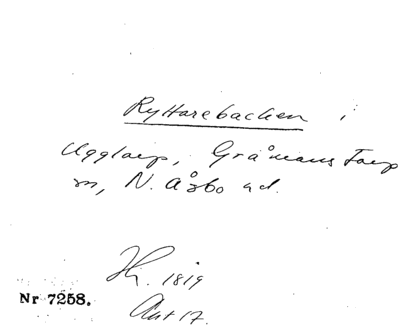 Ryttarebacken i
Uggtorp, Gråmans Torp
sn, N. Åsbo hd.
Hr. 1819
Akt 17.
Nr 7258.